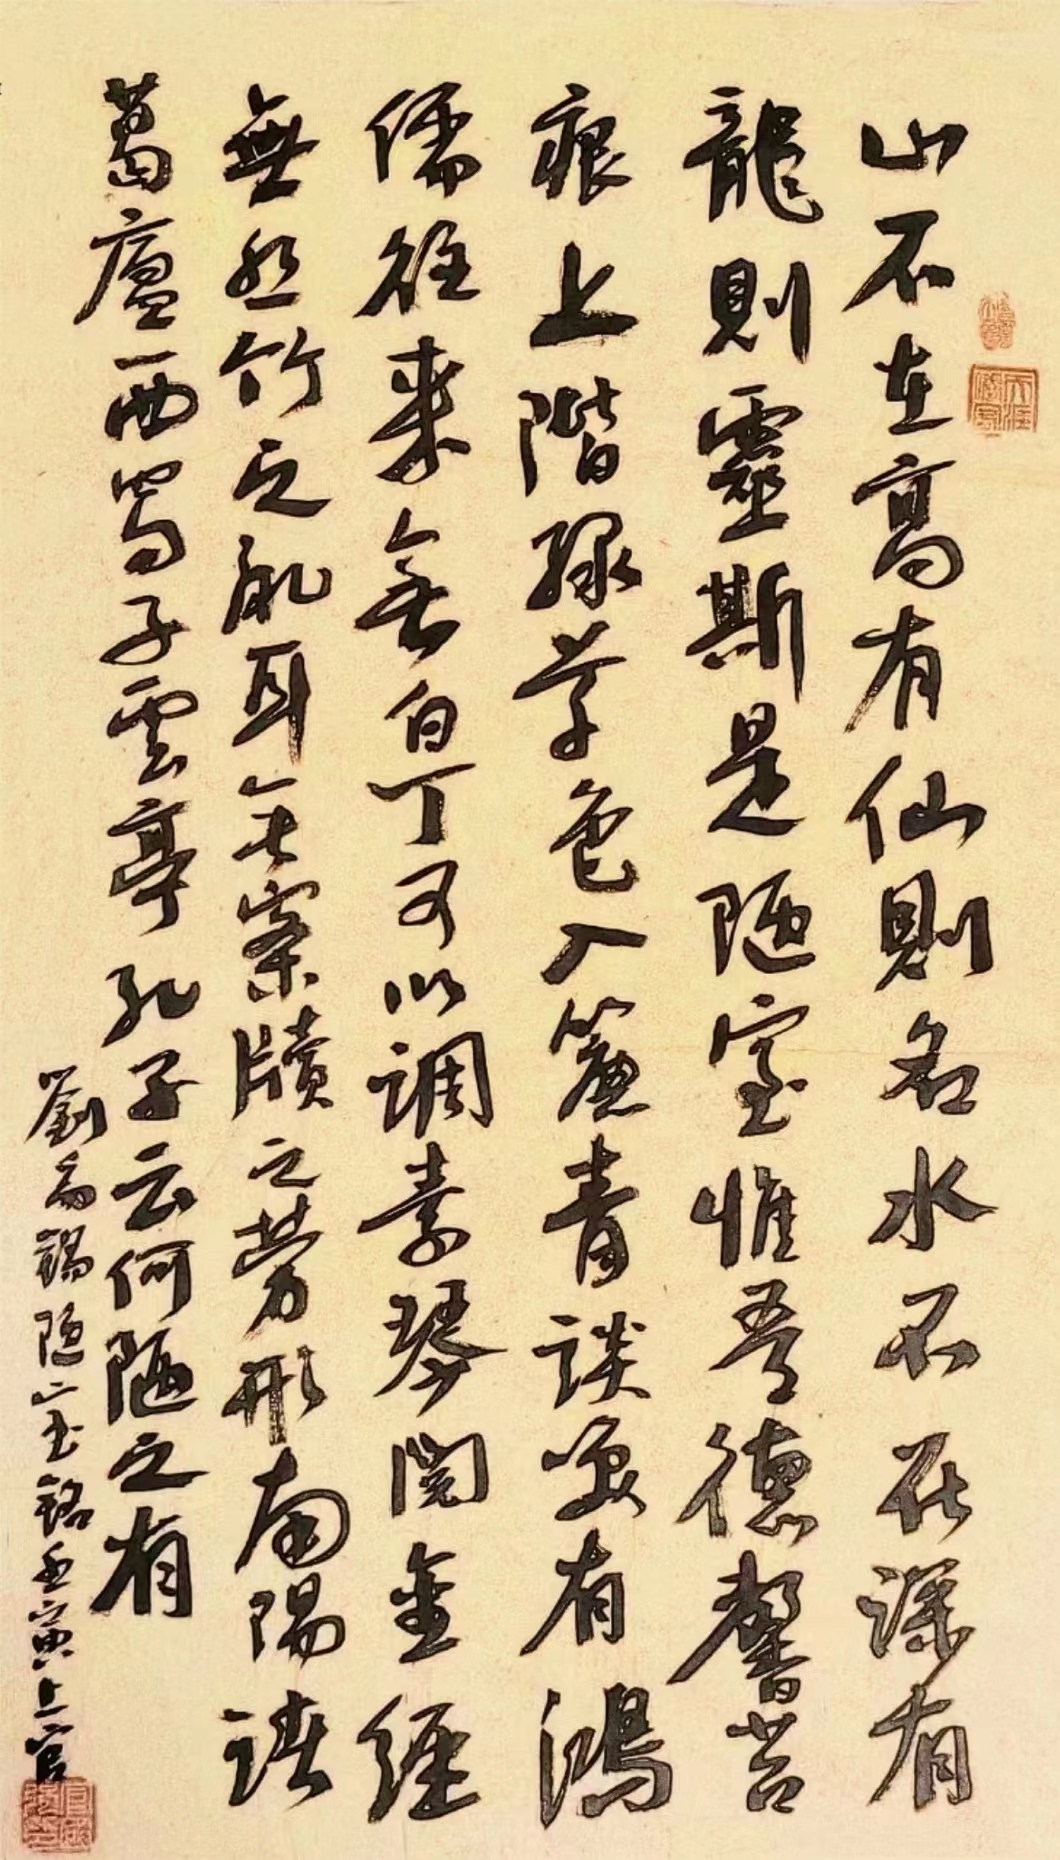 山不在高有仙則名水不在深有
龍則靈斯是陋室惟吾德馨苔
痕上階緑草色入簾青談笑有鴻
儒往来無白丁可以調素琴閱金經
無丝竹之亂耳無案牘之勞形南陽諸
葛廬西蜀子雲亭孔子云何陋之有
劉禹錫陋室銘壬寅上官